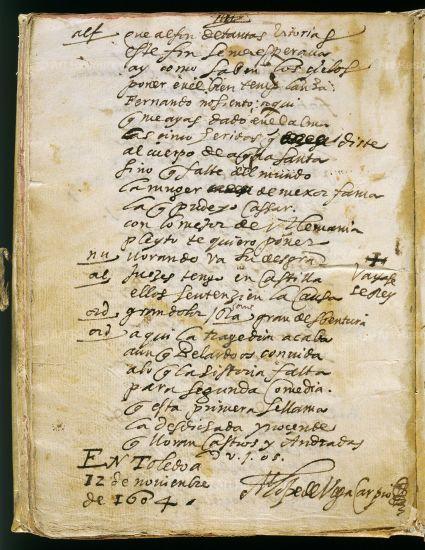 alf que al fin de tantas vitorias
este fin se me esperaua
ay como saben los cielos
poner en el bien tenplança
Fernando no siento aqui
q me ayas dado en el alma
las cinco heridas q diste
al cuerpo de aqlla santa
sino q falte del mundo
la muger de mexor fama
la q pudiera cassar
con lo mejor de Alemania
pleyto te quiero poner
nu llorando va su desgra
al juezes tengo en Castilla
ellos sentenzien la causa
Vayase
el Rey
ord gran dolor gran desbentura
ord aqui la tragedia acaba
aunq Belardo os conuida
a lo q la historia falta
para segunda comedia.
q esta primera se llama
la desdichada ynocente
q lloran Castros y Andradas
EN Toledo a
12 de noviembre
de 1604
Lope de Vega Carpio